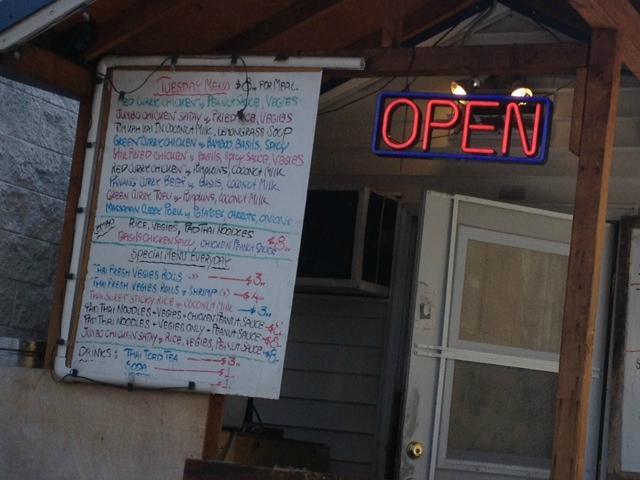 TUESDAY MENU $8 FOR MEAL
RED CURRY CHICKEN PEANUT SAUCE, VEGIES
JUMBO CHICKEN SATAY FRIED RICE, VEGIES
TOM YAM KAI IN COCONUT MILK, LEMONGRASS SOUP
GREEN CURRY CHICKEN BAMBOO, BASILS, SPICY
STIR FRIED CHICKEN BASILS, SPICY SAUCE, VEGIES
RED CURRY CHICKEN PUMPKINS, COCONUT MILK
PANANG CURRY BEEF BASIL, COCONUT MILK
GREEN CURRY TOFU PUMPKINS, COCONUT MILK
MASSAMAN CURRY PORK POTATOES, CARROTS, ONIONS
COMBO RICE, VEGIES, PAD THAI NOODLES
BASILS CHICKEN SPICY, CHICKEN PEANUT SAUCE $8
SPECIAL MENU EVERYDAY
THAI FRESH VEGIES ROLLS $3
THAI FRESH VEGIES ROLLS SHRIMP $4
THAI SWEET STICKY RICE COCONUT MILK $3
PAD THAI NOODLES + VEGIES + CHICKEN PEANUT SAUCE
PAD THAI NOODLES + VEGIES ONLY + PEANUT SAUCE
JUMBO CHICKEN SATAY RICE, VEGIES, PEANUT SAUCE $8
DRINKS: THAI ICED TEA $3
SODA $1
$1
OPEN